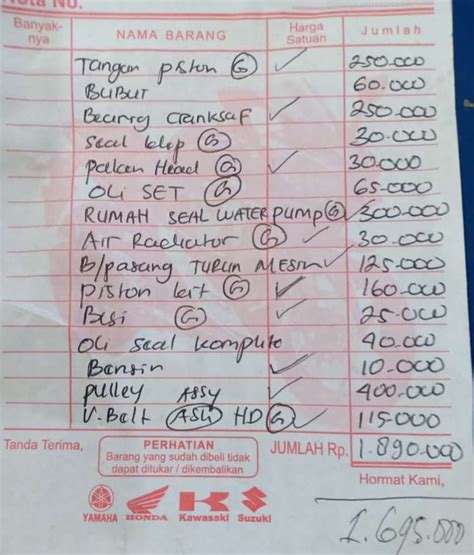 Nota No.
Banyak-nya NAMA BARANG Harga Satuan Jumlah
Tangan piston G 250.000
BUBUT 60.000
Bearing cranksaf 250.000
Seal klep G 30.000
Pakan Head G 30.000
OLI SET G 65.000
RUMAH SEAL WATER PUMP G 300.000
Air Radiator G 30.000
B/pasang TURUN MESIN 125.000
piston kit G 160.000
Busi G 25.000
Oli seal komplite 40.000
Bensin 10.000
pulley ASSY 400.000
V-Belt ASLI HD G 115.000
Tanda Terima, PERHATIAN JUMLAH Rp. 1.890.000
Barang yang sudah dibeli tidak
dapat ditukar / dikembalikan
Hormat Kami,
YAMAHA HONDA Kawasaki Suzuki
1.695.000